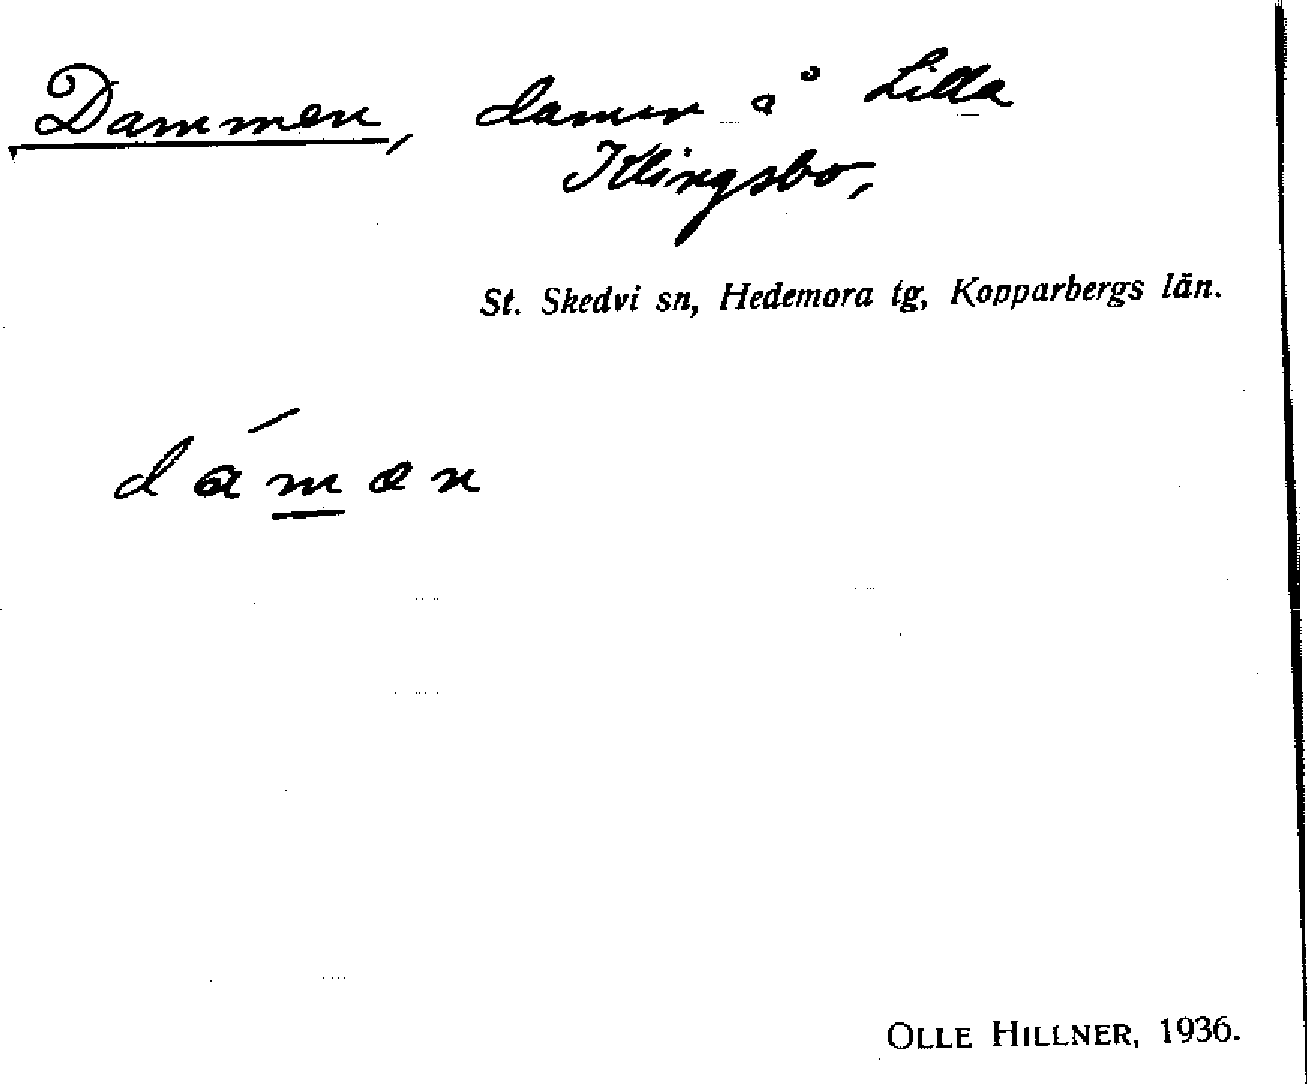 Dammen, damm å Lilla
Klingsbo,
St. Skedvi sn, Hedemora tg, Kopparbergs län.
dámæn
OLLE HILLNER, 1936.